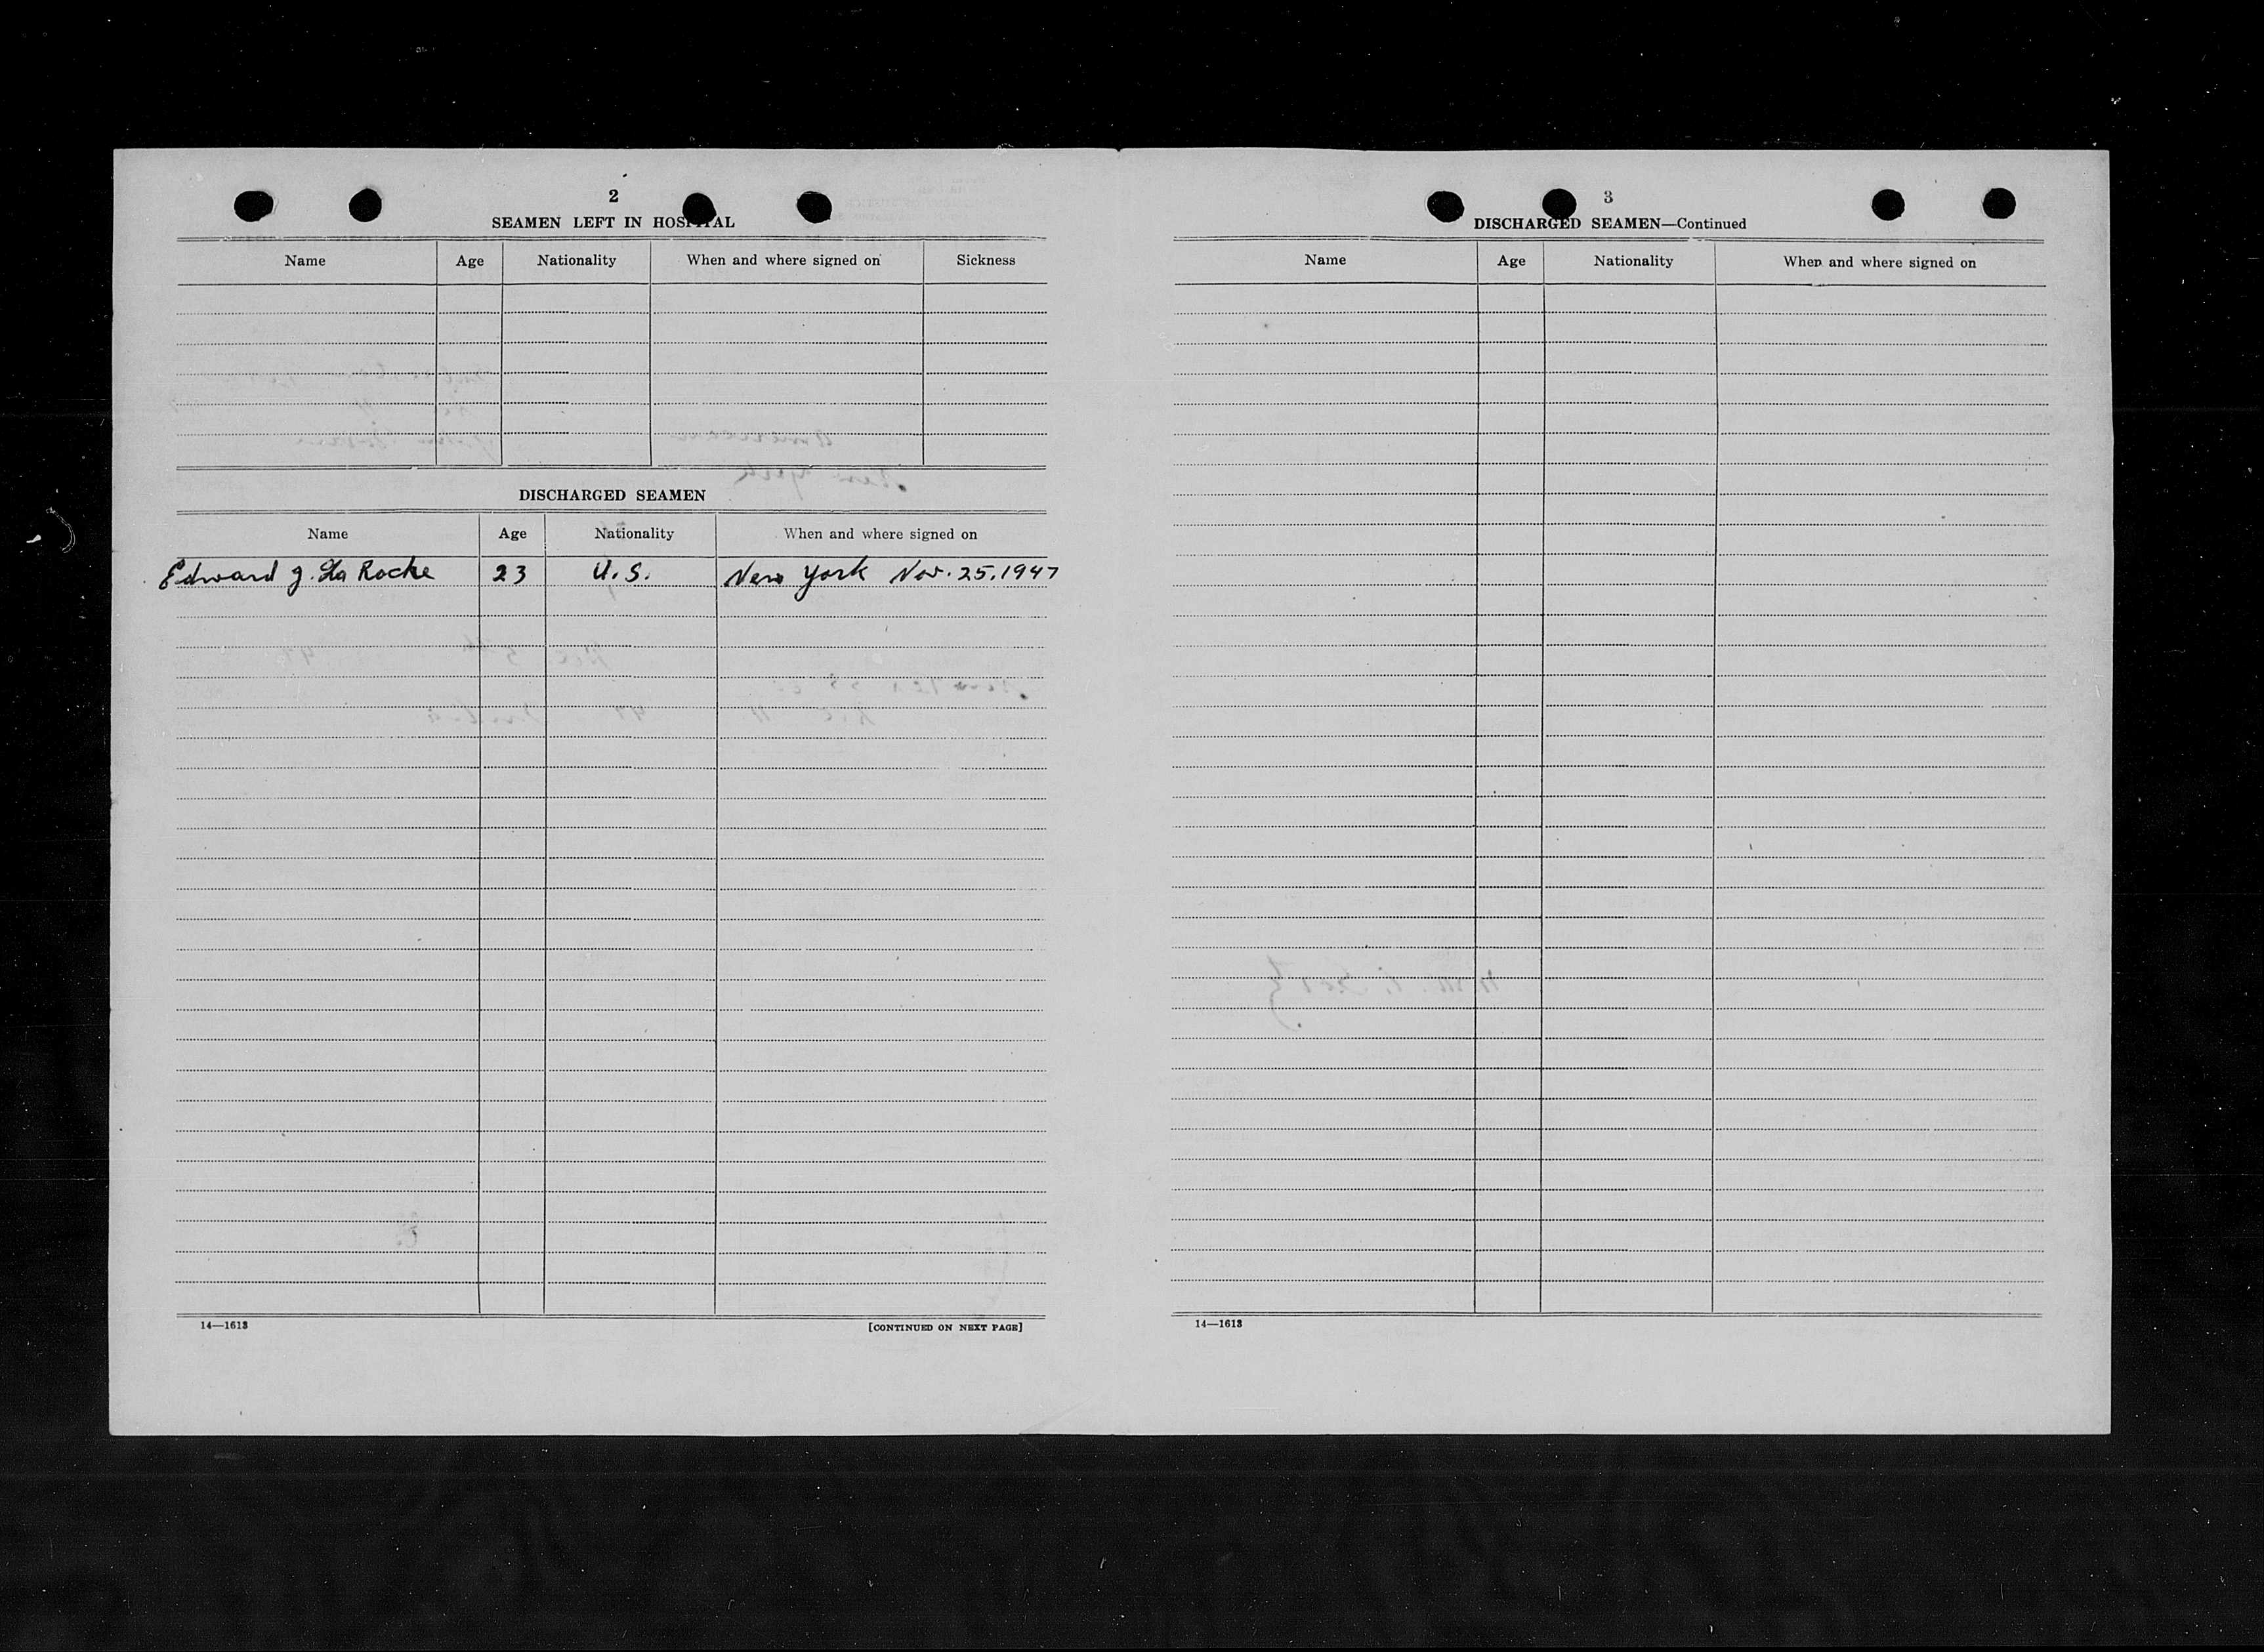 2
SEAMEN LEFT IN HOSPITAL
Name Age Nationality When and where signed on Sickness
DISCHARGED SEAMEN
Name Age Nationality When and where signed on
Edward J. La Roche 23 U.S. New York Nov. 25, 1947
14—1613 [CONTINUED ON NEXT PAGE]
3
DISCHARGED SEAMEN—Continued
Name Age Nationality When and where signed on
14—1613